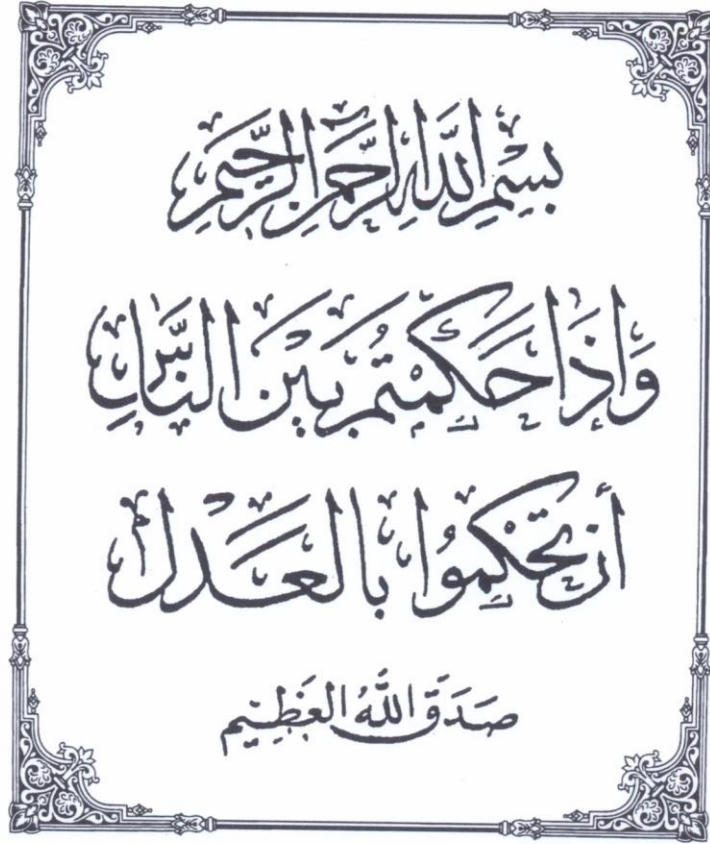 بِسْمِ اللَّهِ الرَّحْمَنِ الرَّحِيمِ
وَإِذَا حَكَمْتُمْ بَيْنَ النَّاسِ
أَنْ تَحْكُمُوا بِالْعَدْلِ
صَدَقَ اللَّهُ الْعَظِيمِ